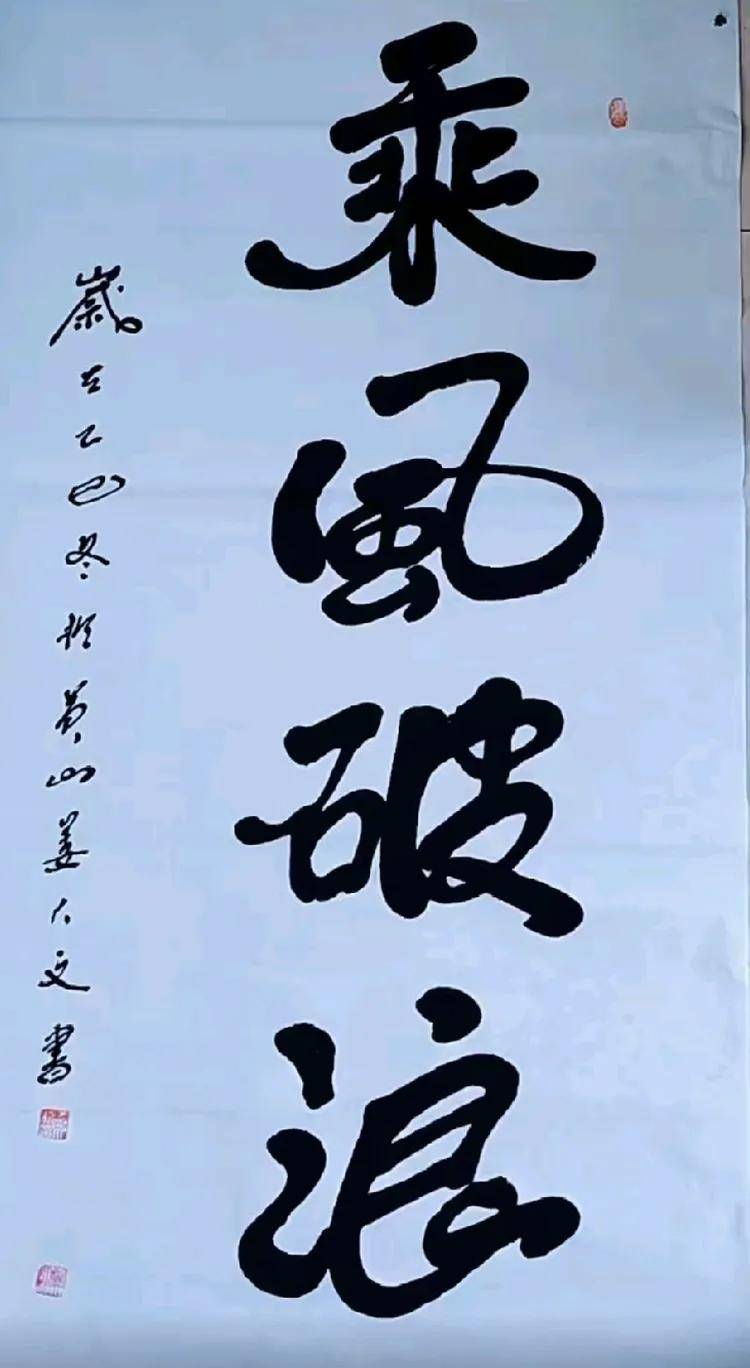 乘風破浪
歲在乙巳冬於黄山姜大文書